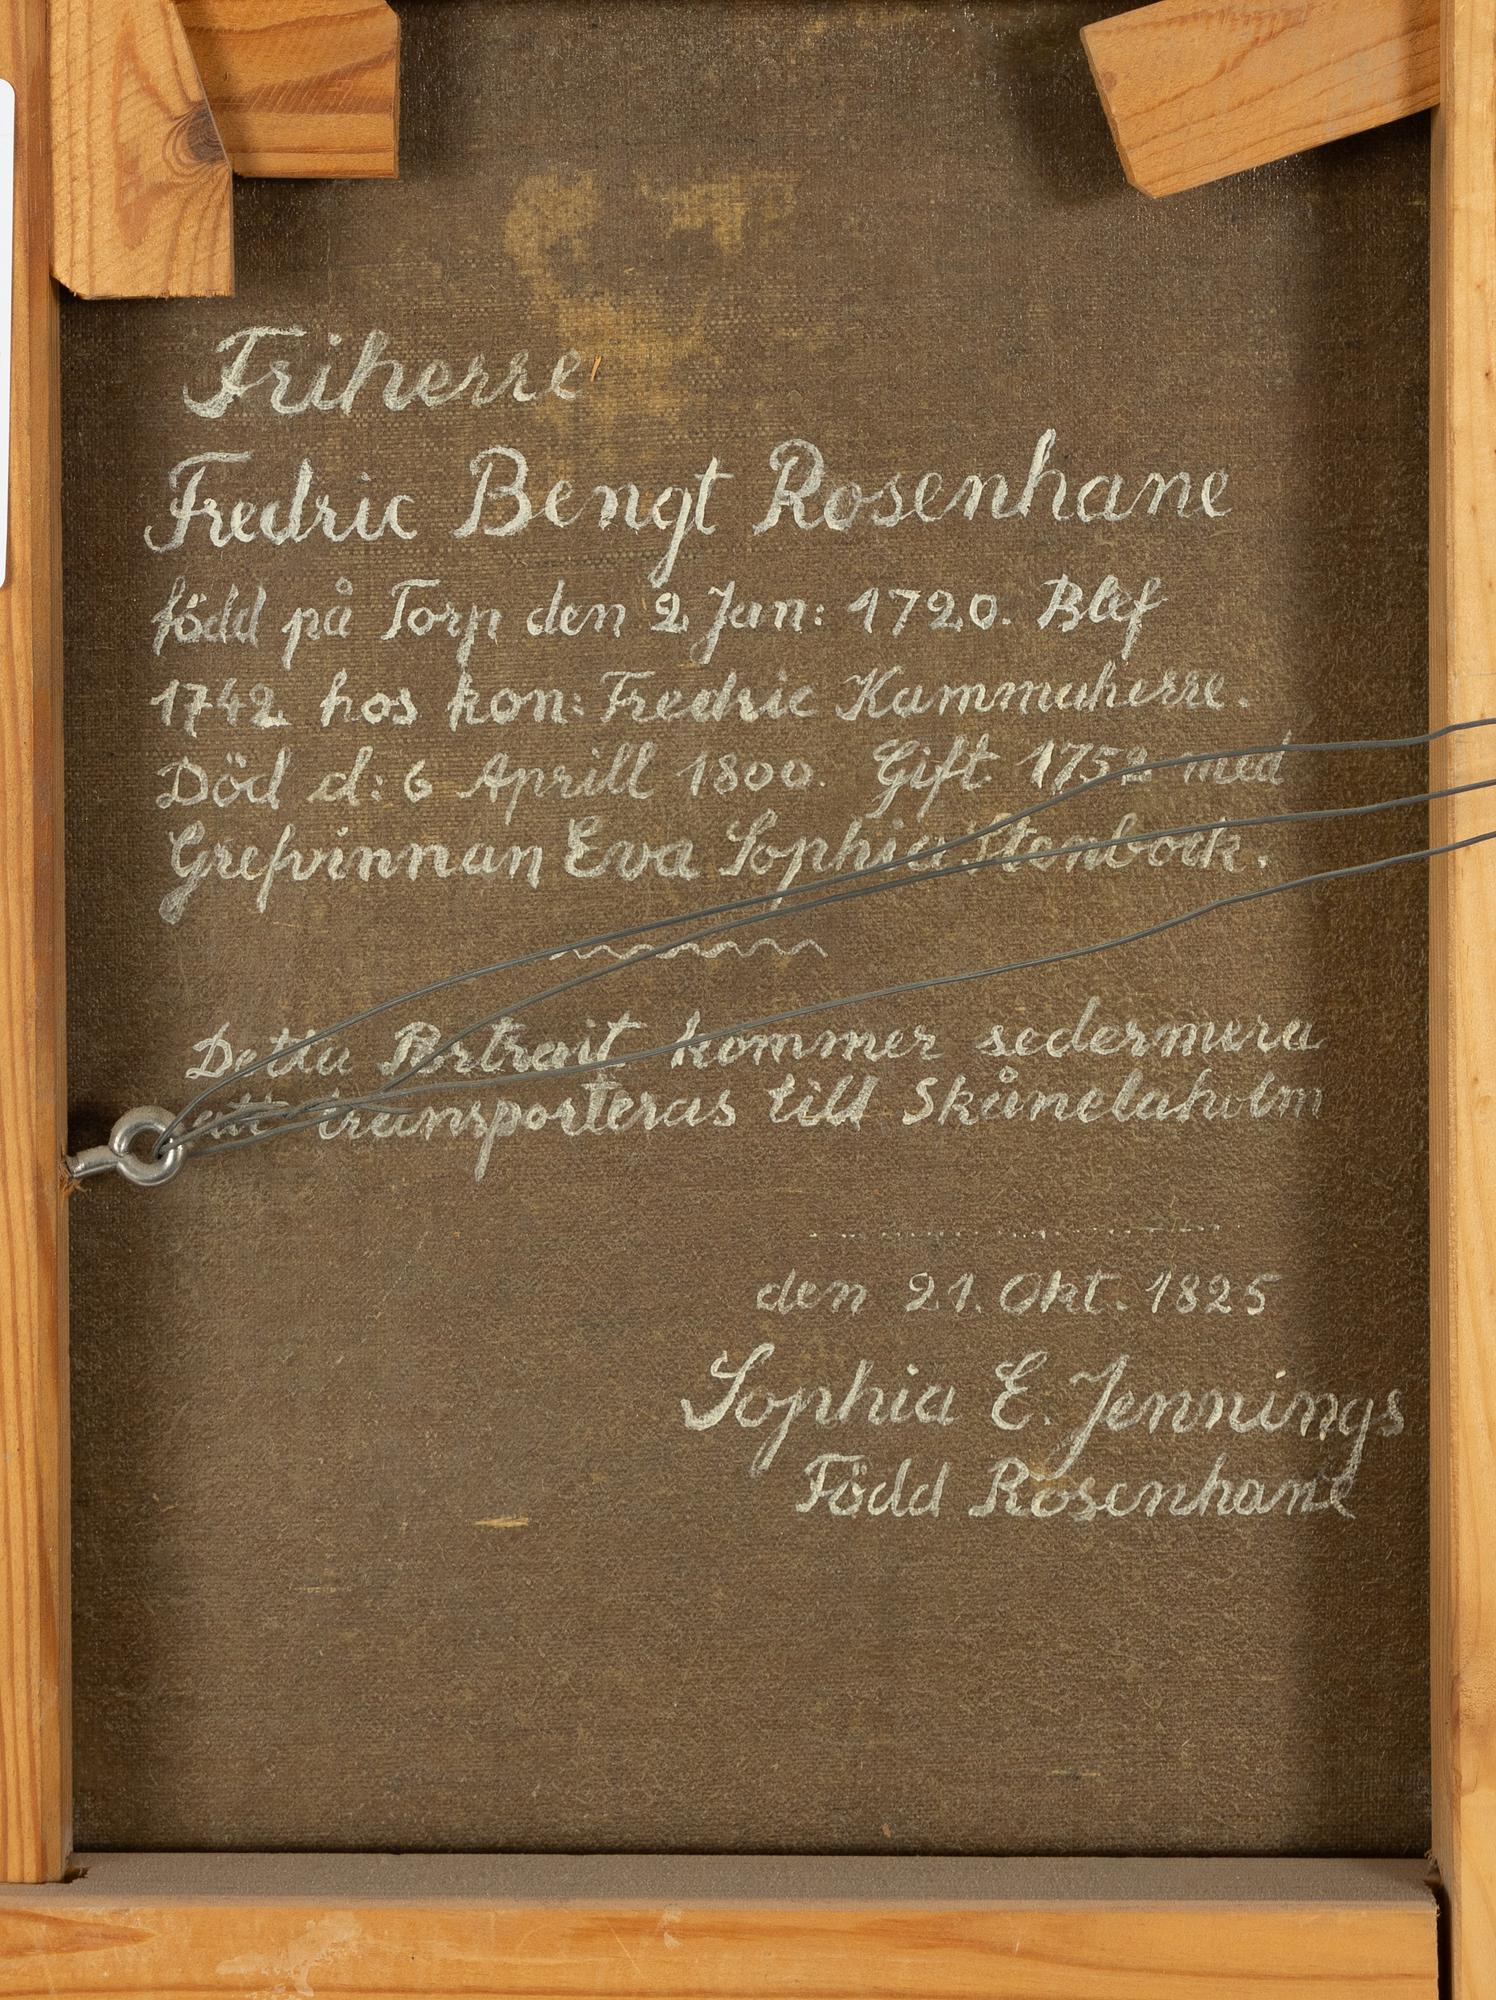 Friherre
Fredric Bengt Rosenhane
född på Torp den 2 Jan: 1720. Blef
1742 hos kon: Fredric Kammuherre.
Död d: 6 Aprill 1800. Gift 1752 med
Grefvinnan Eva Sophia Stenbock.
Detta Portrait kommer sedermera
att transporteras till Skånelaholm
den 21. Okt. 1825
Sophia E. Jennings
Född Rosenhane